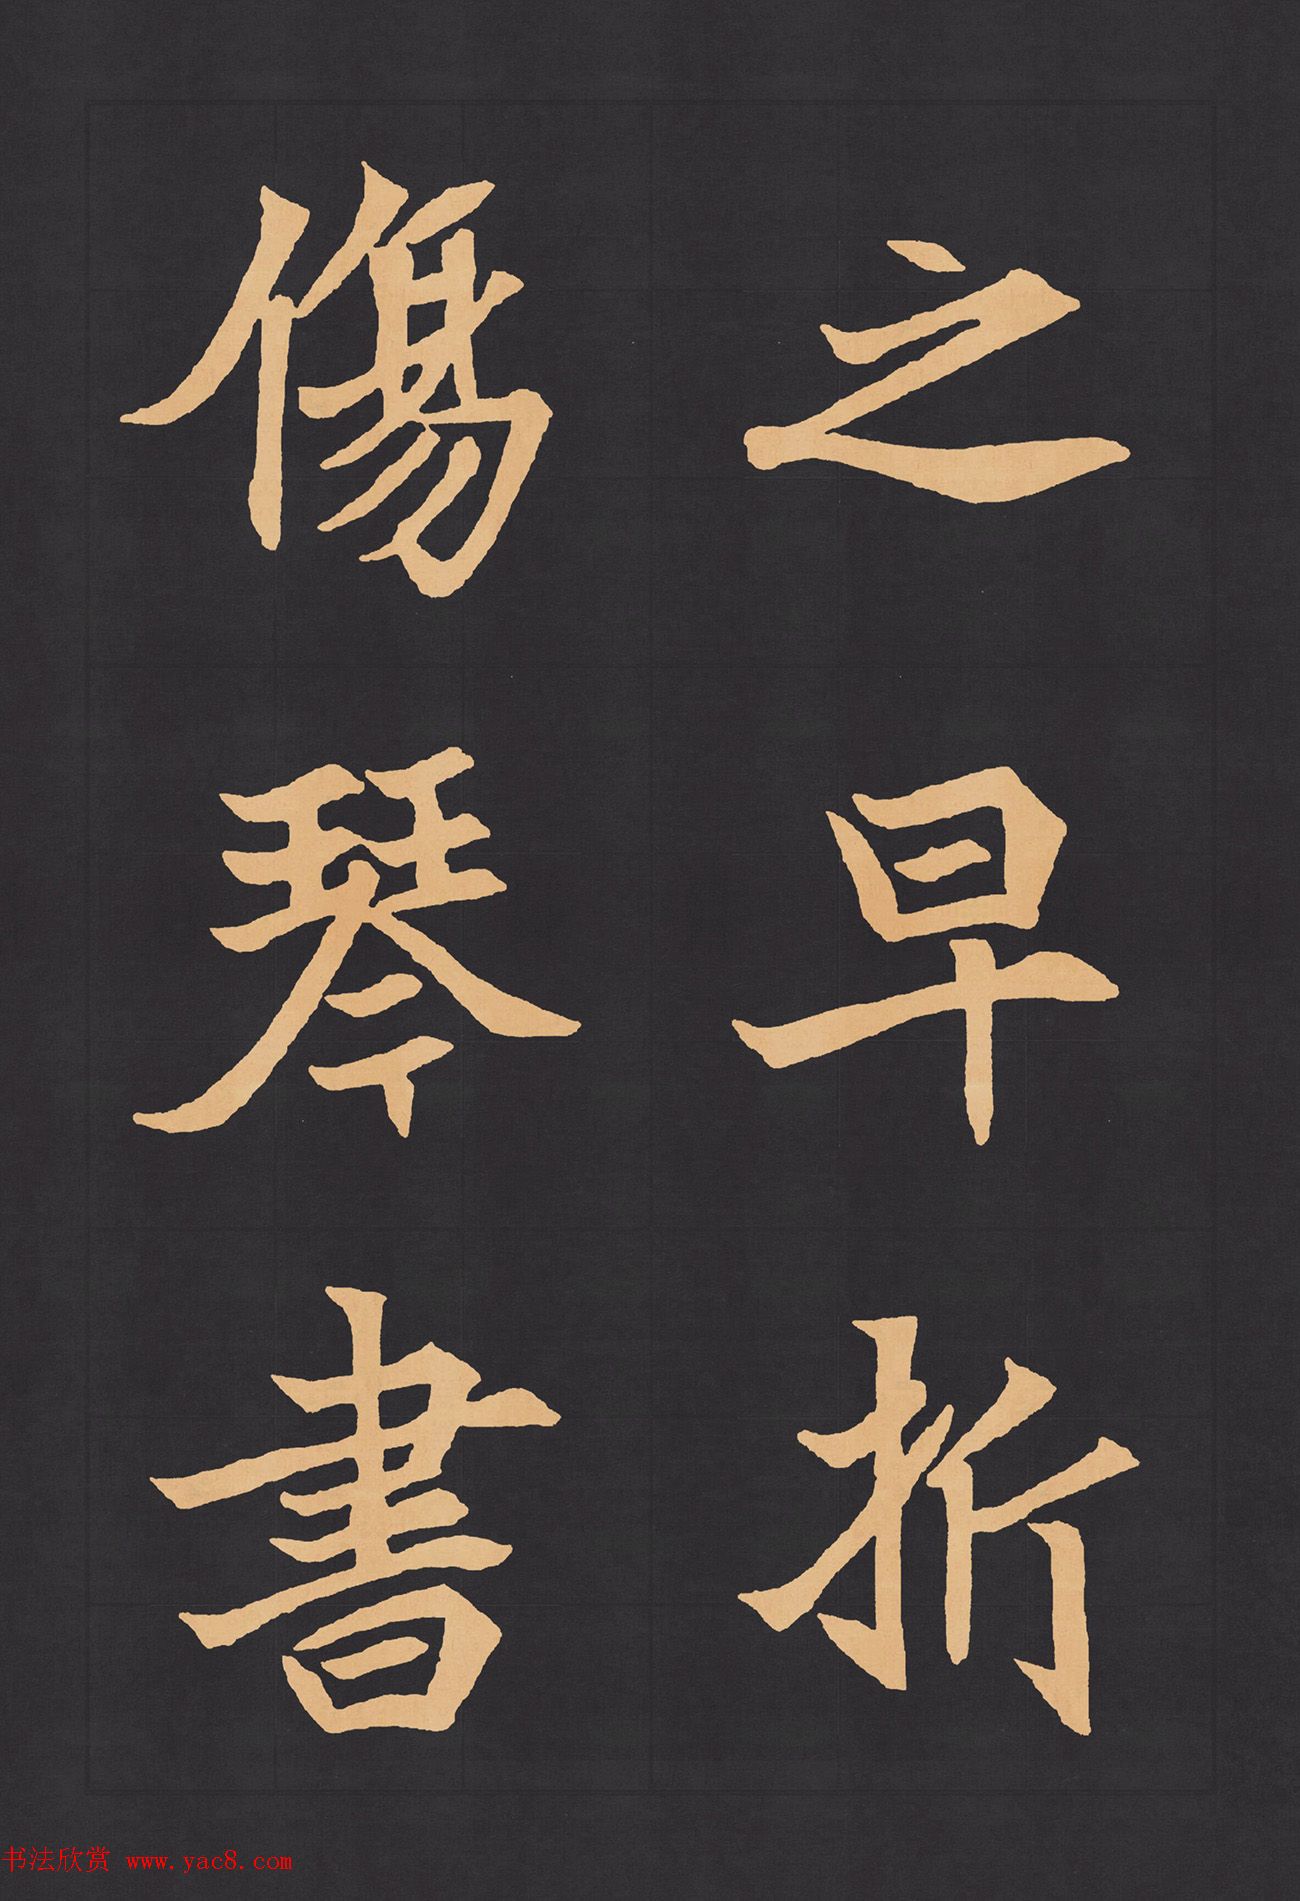 之早折
傷琴書
书法欣赏 www.yac8.com